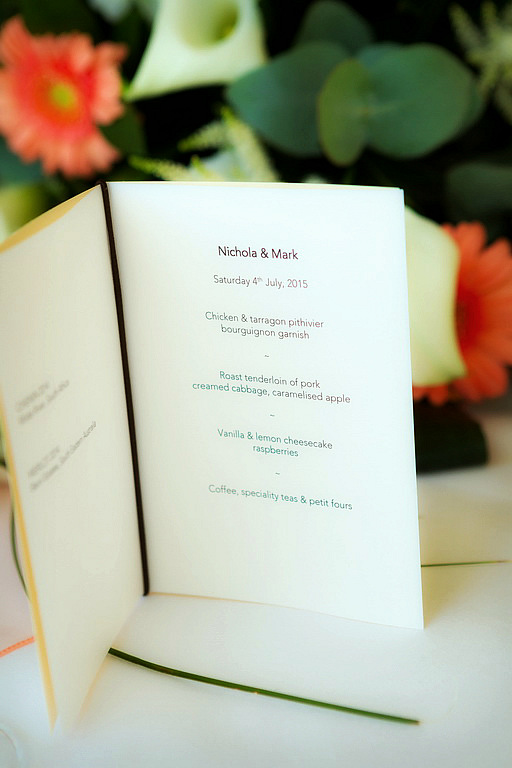 Nichola & Mark
Saturday 4th July, 2015
Chicken & tarragon pithivier
bourguignon garnish
~
Roast tenderloin of pork
creamed cabbage, caramelised apple
~
Vanilla & lemon cheesecake
raspberries
~
Coffee, speciality teas & petit fours